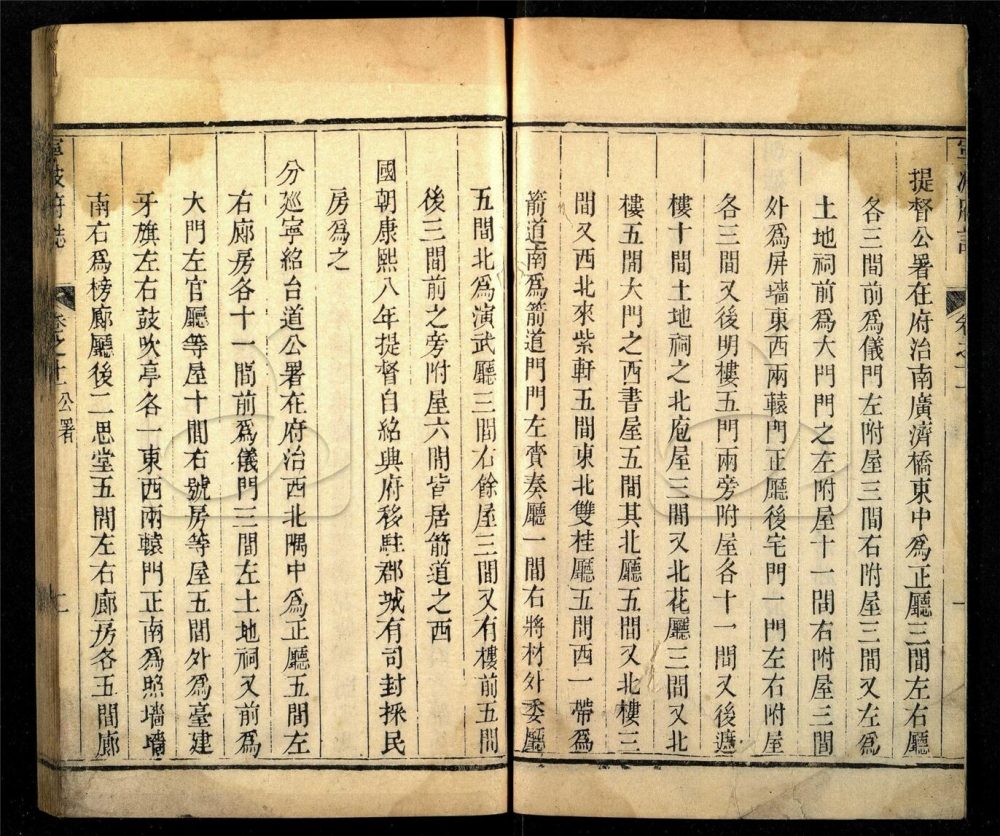 寧波府誌
卷之十一
一
提督公署在府治南廣濟橋東中爲正廳三間左右廳
各三間前爲儀門左附屋三間右附屋三間又左爲
土地祠前爲大門門之左附屋十一間右附屋三間
外爲屏墻東西兩轅門正廳後宅門一門左右附屋
各三間又後明樓五門兩旁附屋各十一間又後遞
樓十間土地祠之北庖屋三間又北花廳三間又北
樓五間大門之西書屋五間其北廳五間又北樓三
間又西北來紫軒五間東北雙桂廳五間西一帶爲
箭道南爲箭道門門左賫奏廳一間右將材外委廳
五間北爲演武廳三間右餘屋三間又有樓前五間
後三間前之旁附屋六間皆居箭道之西
國朝康熙八年提督自紹興府移駐郡城有司封採民
房爲之
分廵寧紹台道公署在府治西北隅中爲正廳五間左
右廊房各十一間前爲儀門三間左土地祠又前爲
大門左官廳等屋十間右號房等屋五間外爲臺建
牙旗左右鼓吹亭各一東西兩轅門正南爲照墻墻
南右爲榜廊廳後二思堂五間左右廊房各五間廊
寧波府誌
卷之十一
公署